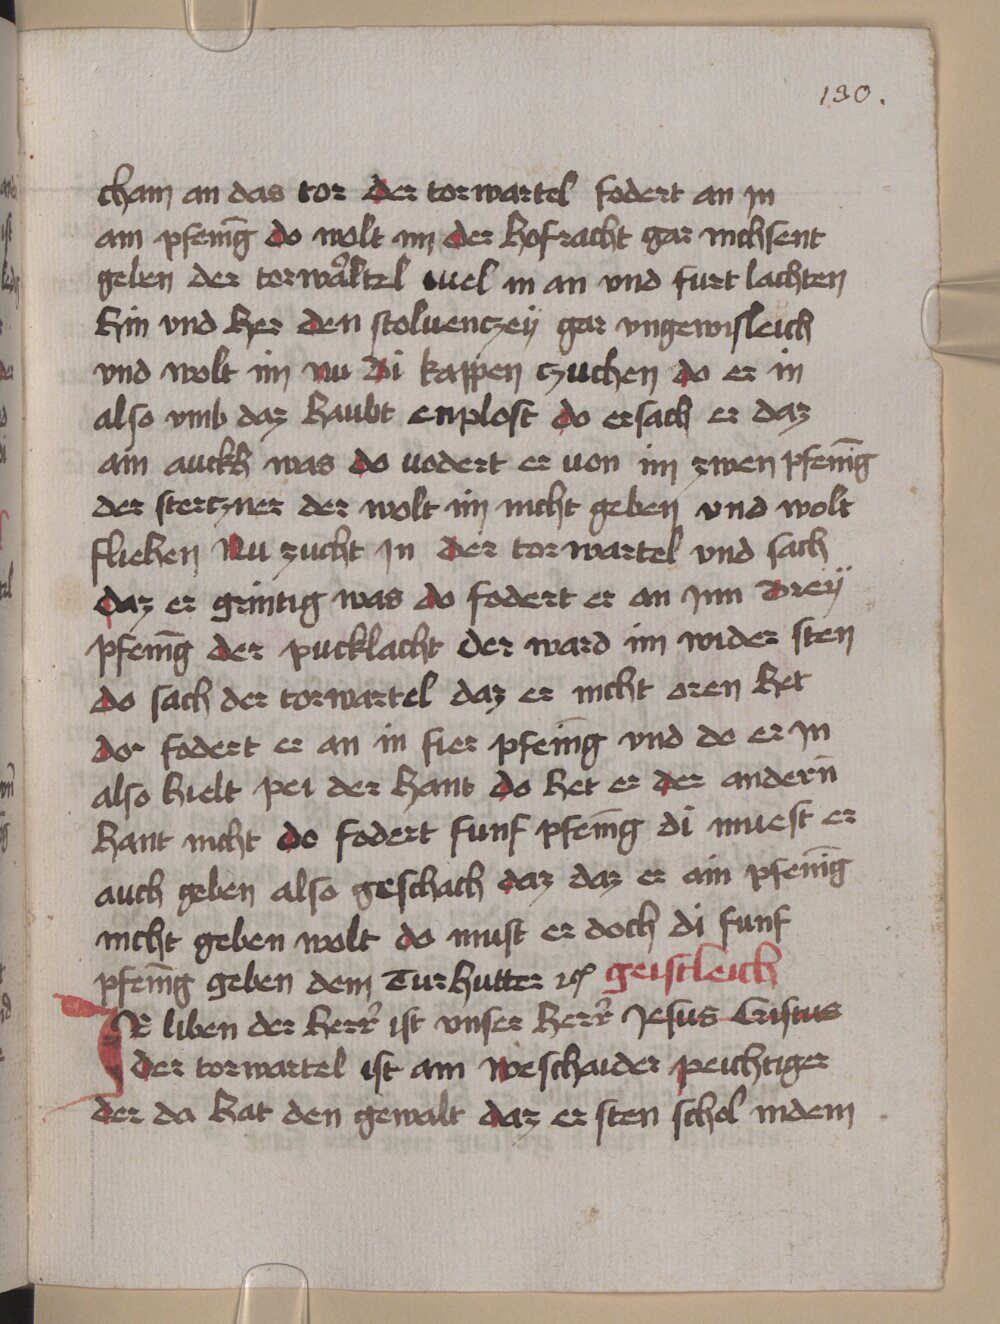 130.
cham an das tor der torwartel fodert an in
ain pfenīg do wolt im der hofracht gar nichsent
geben der torwartel viel in an und furt lachten
hin vnd her den stoluenczey gar vngewisleich
vnd wolt im nu di kappen czuchen do er in
also vmb daz haubt enplost do ersach er daz
ain auckh was do vodert er von im zwen pfenīg
der sterczner der wolt im nicht geben vnd wolt
fliehen Nu zucht in der torwartel vnd sach
daz er grintig was do fodert er an jnn drey
pfenīg der pucklacht der ward im wider sten
do sach der torwartel daz er nicht oren het
dor fodert er an in fier pfenīg vnd do er in
also hielt pei der hant do het er der andern
hant nicht do fodert funf pfenīg di muest er
auch geben also geschach daz daz er ain pfenīg
nicht geben wolt do must er doch di funf
pfenīg geben dem Turhutter geistleich
Ir liben der herr ist vnser herr Jesus Cristus
der torwartel ist ain weschaider peichtiger
der da hat den gewalt daz er sten schol indem